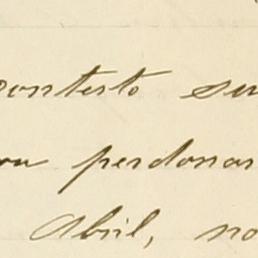 contesto su
perdonar
Abril, no